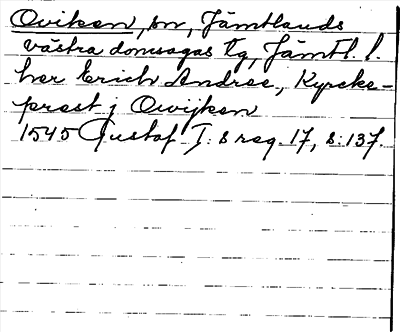 Oviken, sn, Jämtlands
västra domsagas tg, Jämtl. l.
her Erich Andree, Kyrcke-
prest j Owijken
1545 Gustaf I:s reg. 17, s. 137.